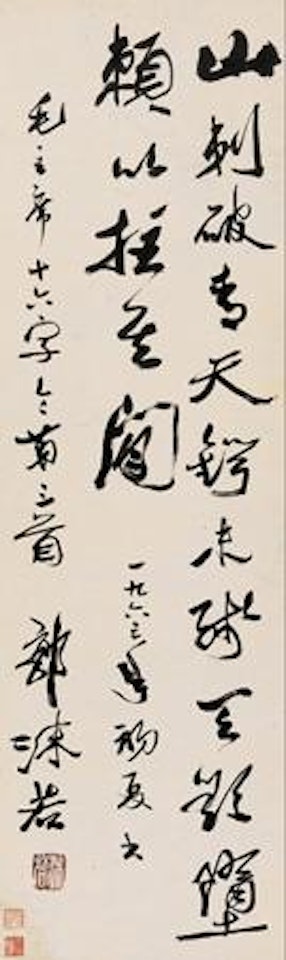 山刺破青天鍔未殘天欲墮
賴以拄其間
一九六三年初夏书
毛主席十六字令第三首 郭沫若